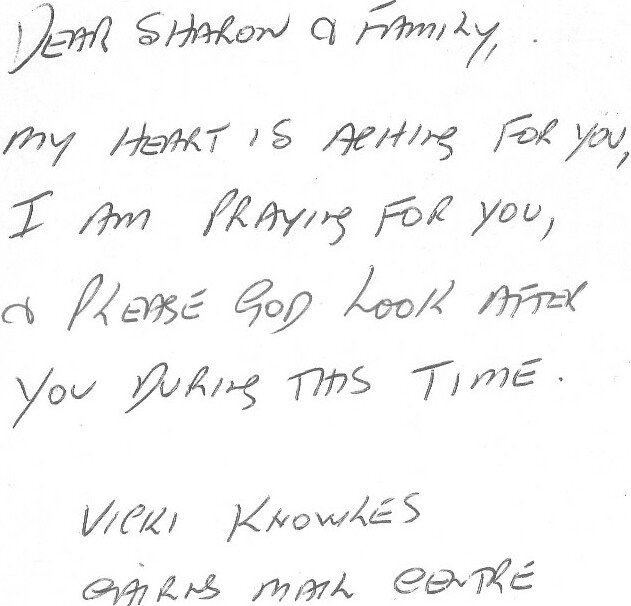 DEAR SHARON & FAMILY,
MY HEART IS ACHING FOR YOU,
I AM PRAYING FOR YOU,
& PLEASE GOD LOOK AFTER
YOU DURING THIS TIME.
VICKI KNOWLES
CAIRNS MAIL CENTRE